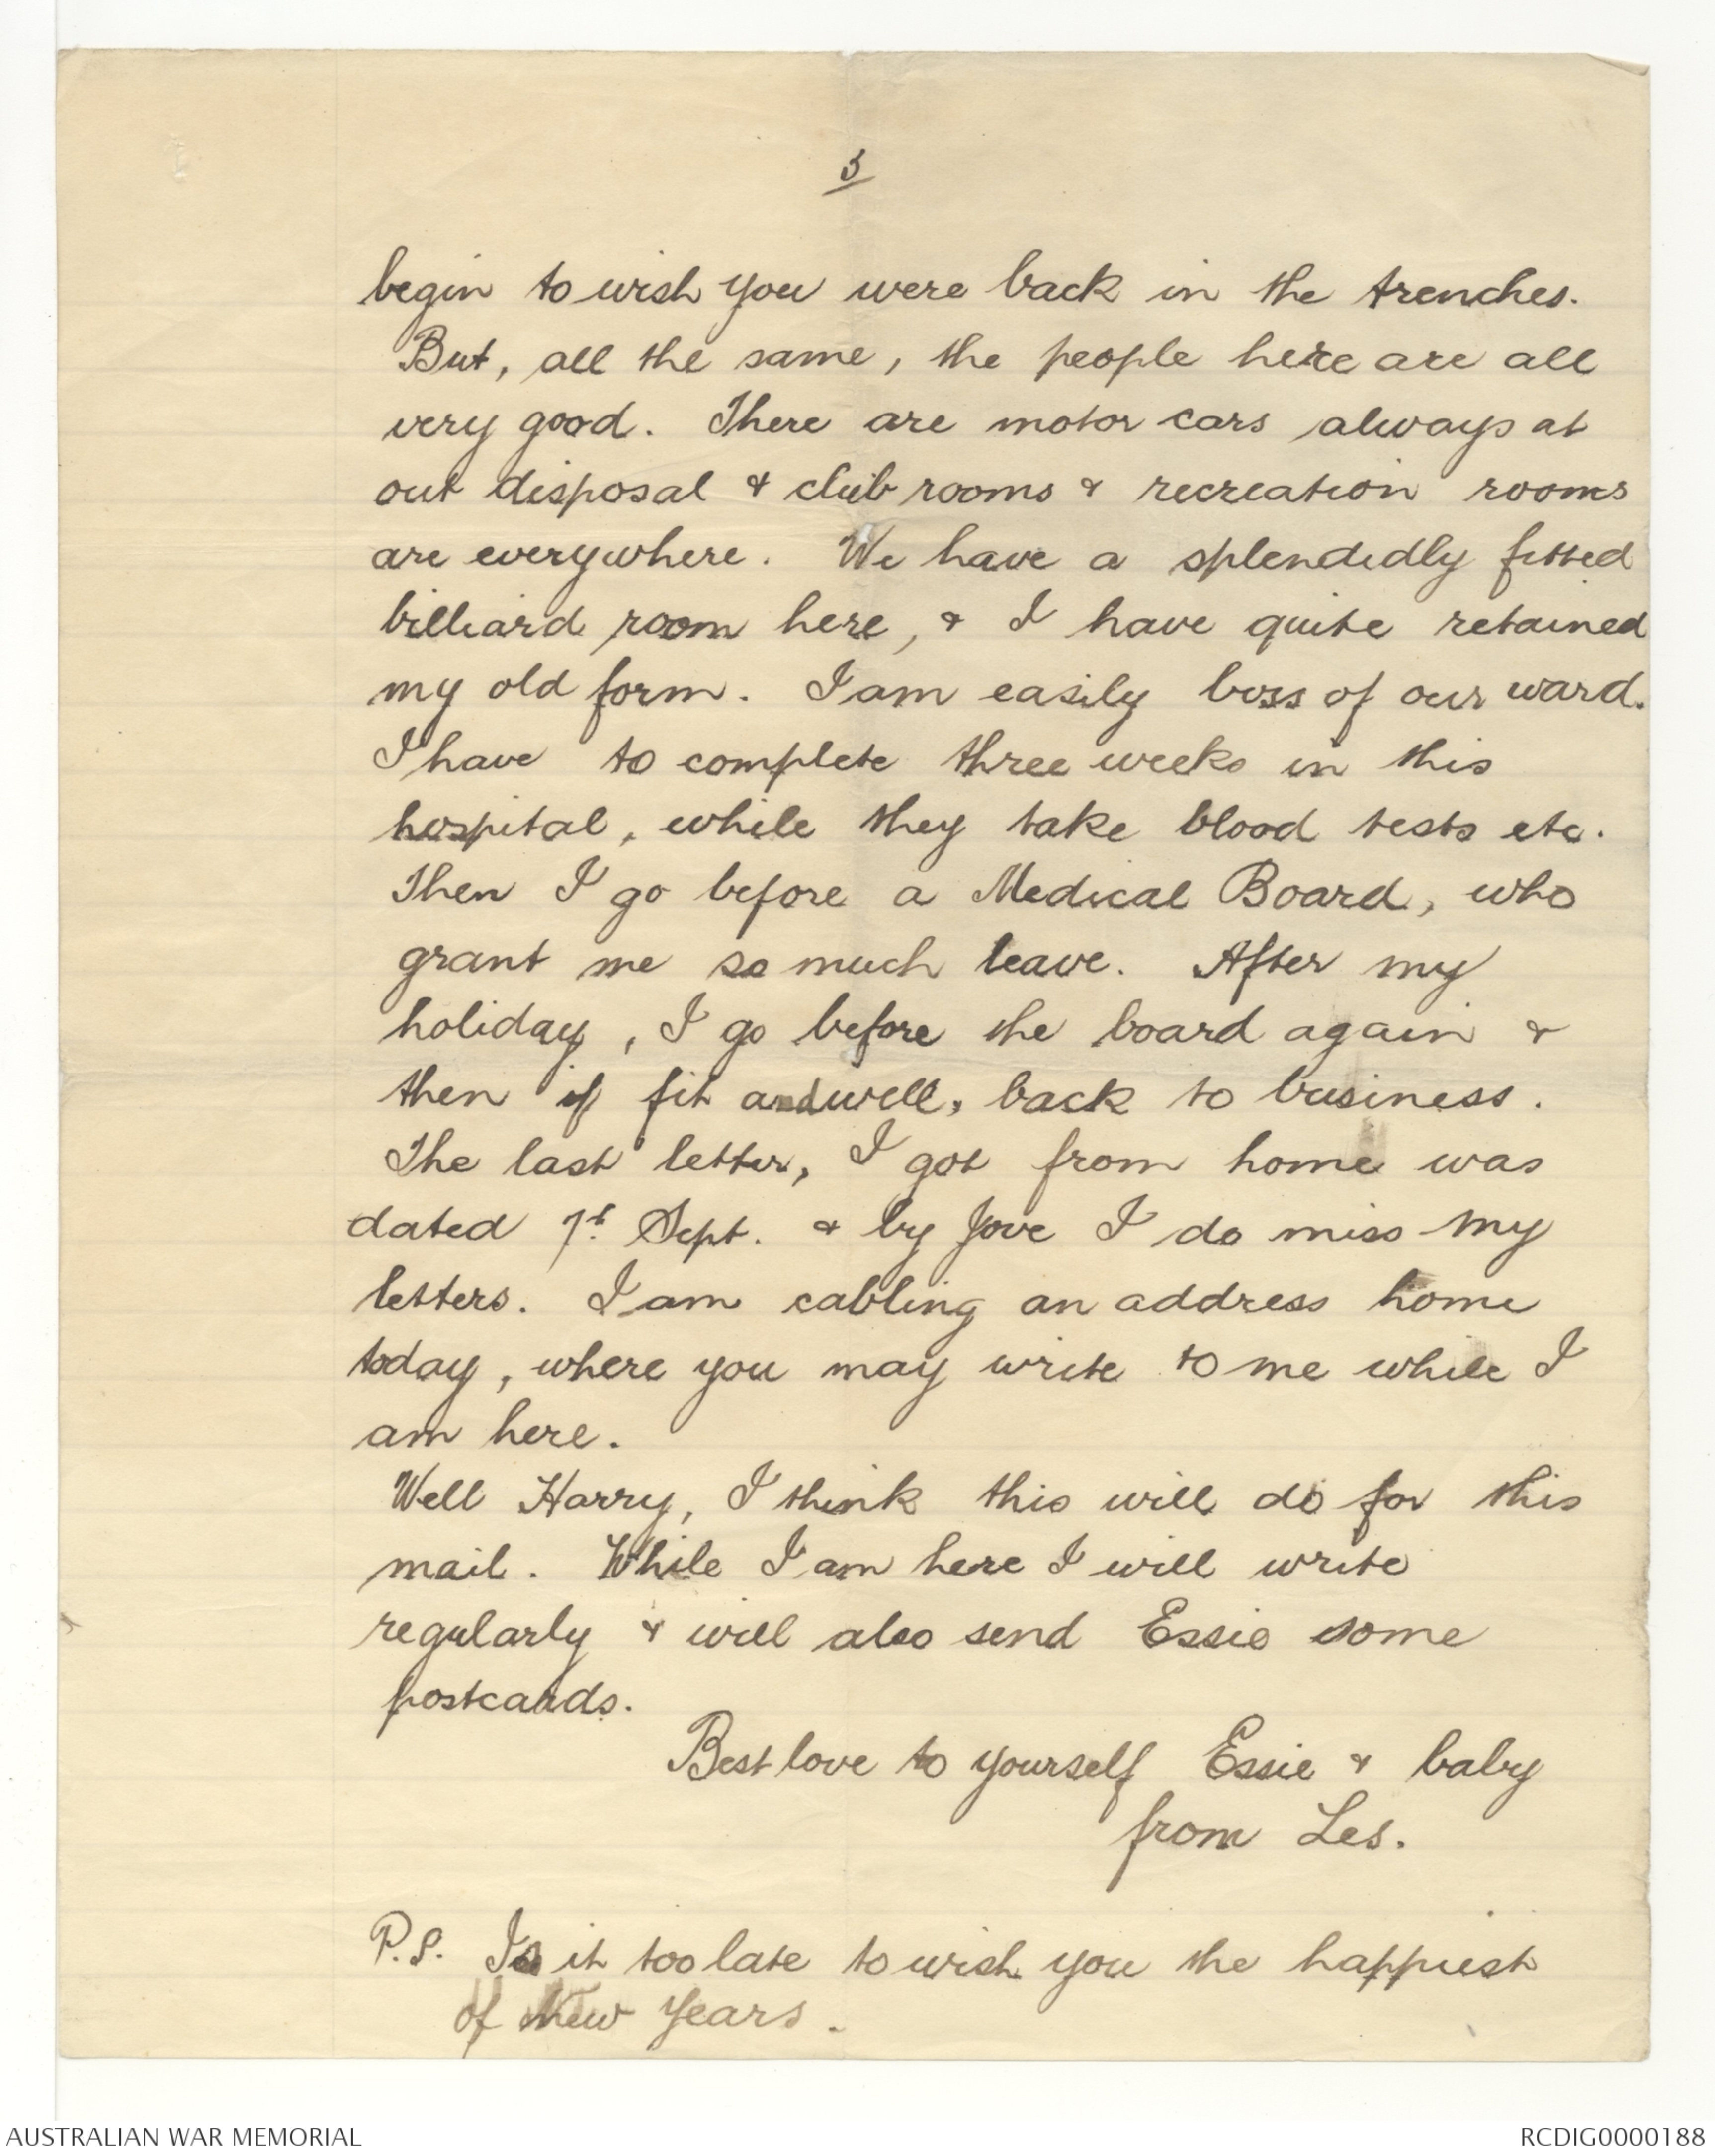 3
begin to wish you were back in the trenches.
But, all the same, the people here are all
very good. There are motor cars always at
out disposal & club rooms & recreation rooms
are everywhere. We have a splendidly fitted
billiard room here, & I have quite retained
my old form. I am easily boss of our ward.
I have to complete three weeks in this
hospital, while they take blood tests etc.
Then I go before a Medical Board, who
grant me so much leave. After my
holiday, I go before the board again &
then if fit and well, back to business.
The last letter, I got from home was
dated 7t Sept. & by Jove I do miss my
letters. I am cabling an address home
today, where you may write to me while I
am here.
Well Harry, I think this will do for this
mail. While I am here I will write
regularly & will also send Essie some
postcards.
Best love to yourself Essie & baby
from Les.
P.S. Is it too late to wish you the happiest
of New Years.
AUSTRALIAN WAR MEMORIAL
RCDIG0000188